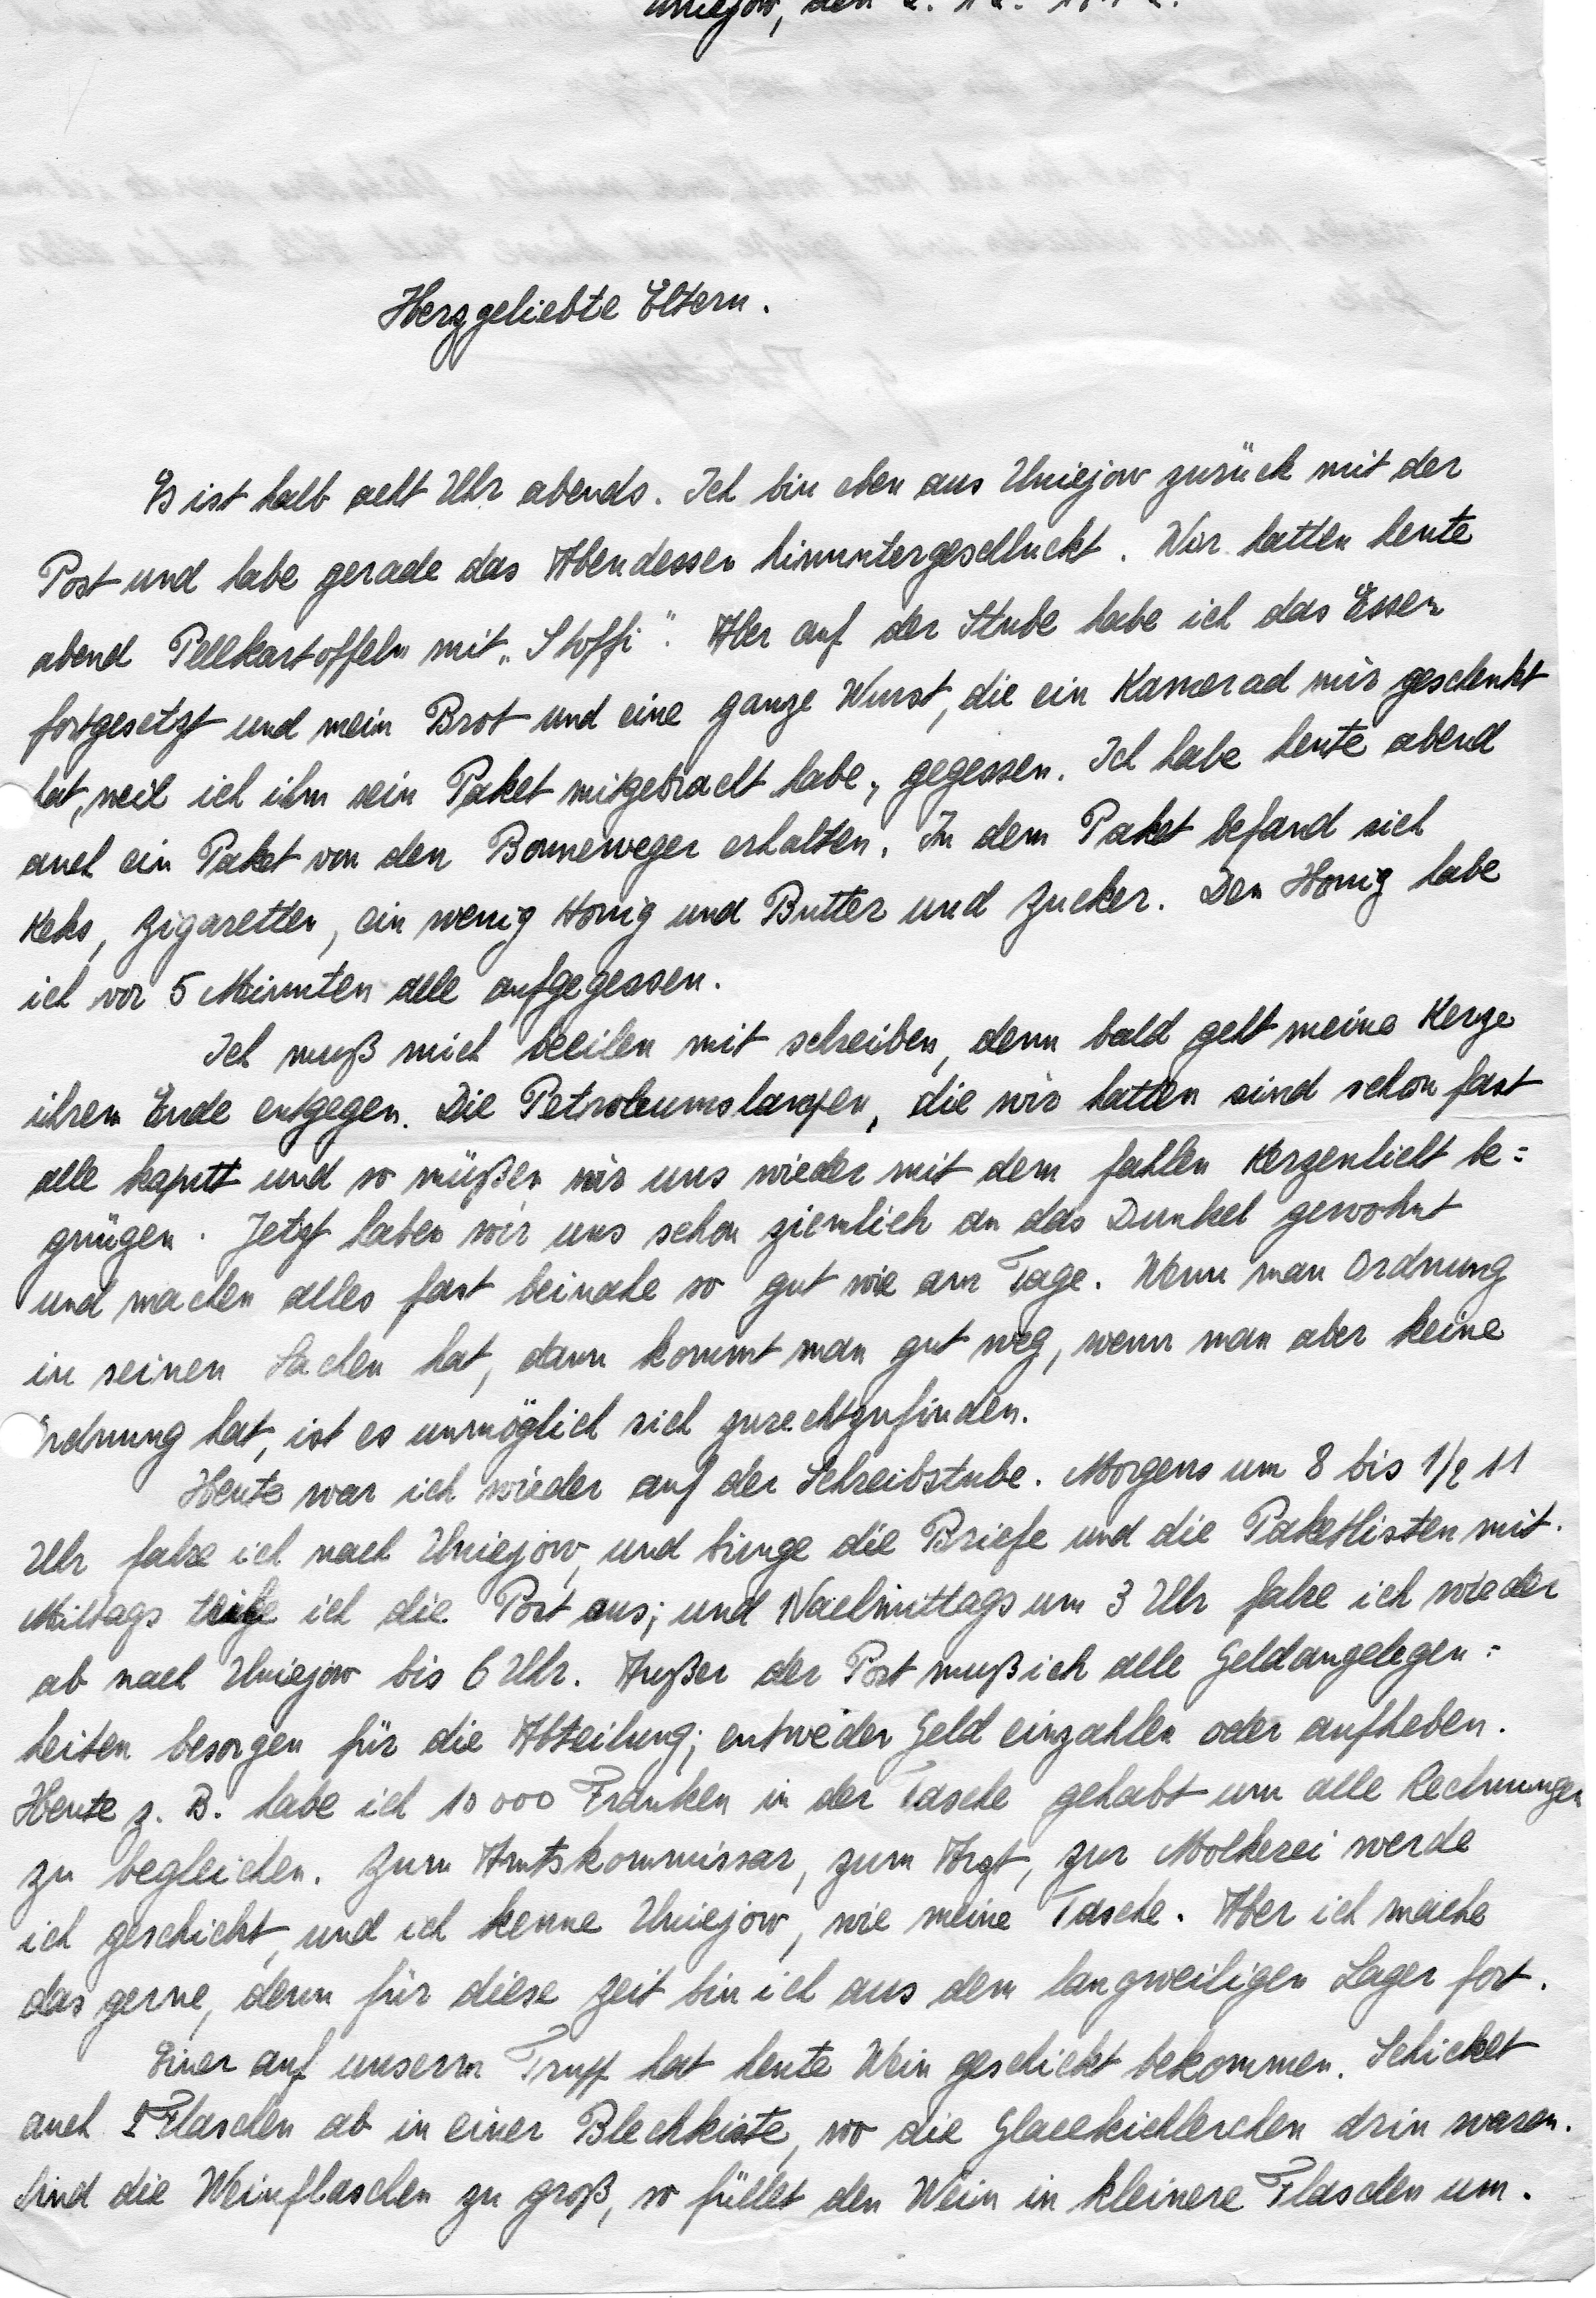 Uniejow, den 2. 12. 1942.
Herzgeliebte Eltern.
Es ist halb acht Uhr abends. Ich bin eben aus Uniejow zurück mit der
Post und habe gerade das Abendessen hinuntergeschluckt. Wir hatten heute
abend Pellkartoffeln mit „Stoffi". Aber auf der Stube habe ich das Essen
fortgesetzt und mein Brot und eine ganze Wurst, die ein Kamerad mir geschenkt
hat, weil ich ihm sein Paket mitgebracht habe, gegessen. Ich habe heute abend
auch ein Paket von den Bonneweger erhalten. In dem Paket befand sich
Keks, Zigaretten, ein wenig Honig und Butter und Zucker. Den Honig habe
ich vor 5 Minuten alle aufgegessen.
Ich muß mich beeilen mit schreiben, denn bald geht meine Kerze
ihrem Ende entgegen. Die Petroleumslampen, die wir hatten sind schon fast
alle kaputt und so müßen wir uns wieder mit dem fahlen Kerzenlicht be=
gnügen. Jetzt haben wir uns schon ziemlich an das Dunkel gewohnt
und machen alles fast beinahe so gut wie am Tage. Wenn man Ordnung
in seinen Sachen hat, dann kommt man gut weg, wenn man aber keine
Ordnung hat, ist es unmöglich sich zurechtzufinden.
Heute war ich wieder auf der Schreibstube. Morgens um 8 bis 1/2 11
Uhr fahre ich nach Uniejow, und bringe die Briefe und die Paketlisten mit.
Mittags teile ich die Post aus; und Nachmittags um 3 Uhr fahre ich wieder
ab nach Uniejow bis 6 Uhr. Außer der Post muß ich alle Geldangelegen=
heiten besorgen für die Abteilung; entweder Geld einzahlen oder aufheben.
Heute z. B. habe ich 10 000 Franken in der Tasche gehabt um alle Rechnungen
zu begleichen. Zum Amtskommissar, zum Arzt, zur Molkerei werde
ich geschickt, und ich kenne Uniejow, wie meine Tasche. Aber ich mache
das gerne, denn für diese Zeit bin ich aus dem langweiligen Lager fort.
Einer auf unserm Trupp hat heute Wein geschickt bekommen. Schicket
auch 2 Flaschen ab in einer Blechkiste, wo die drin waren.
Sind die Weinflaschen zu groß, so füllet den Wein in kleinere Flaschen um.